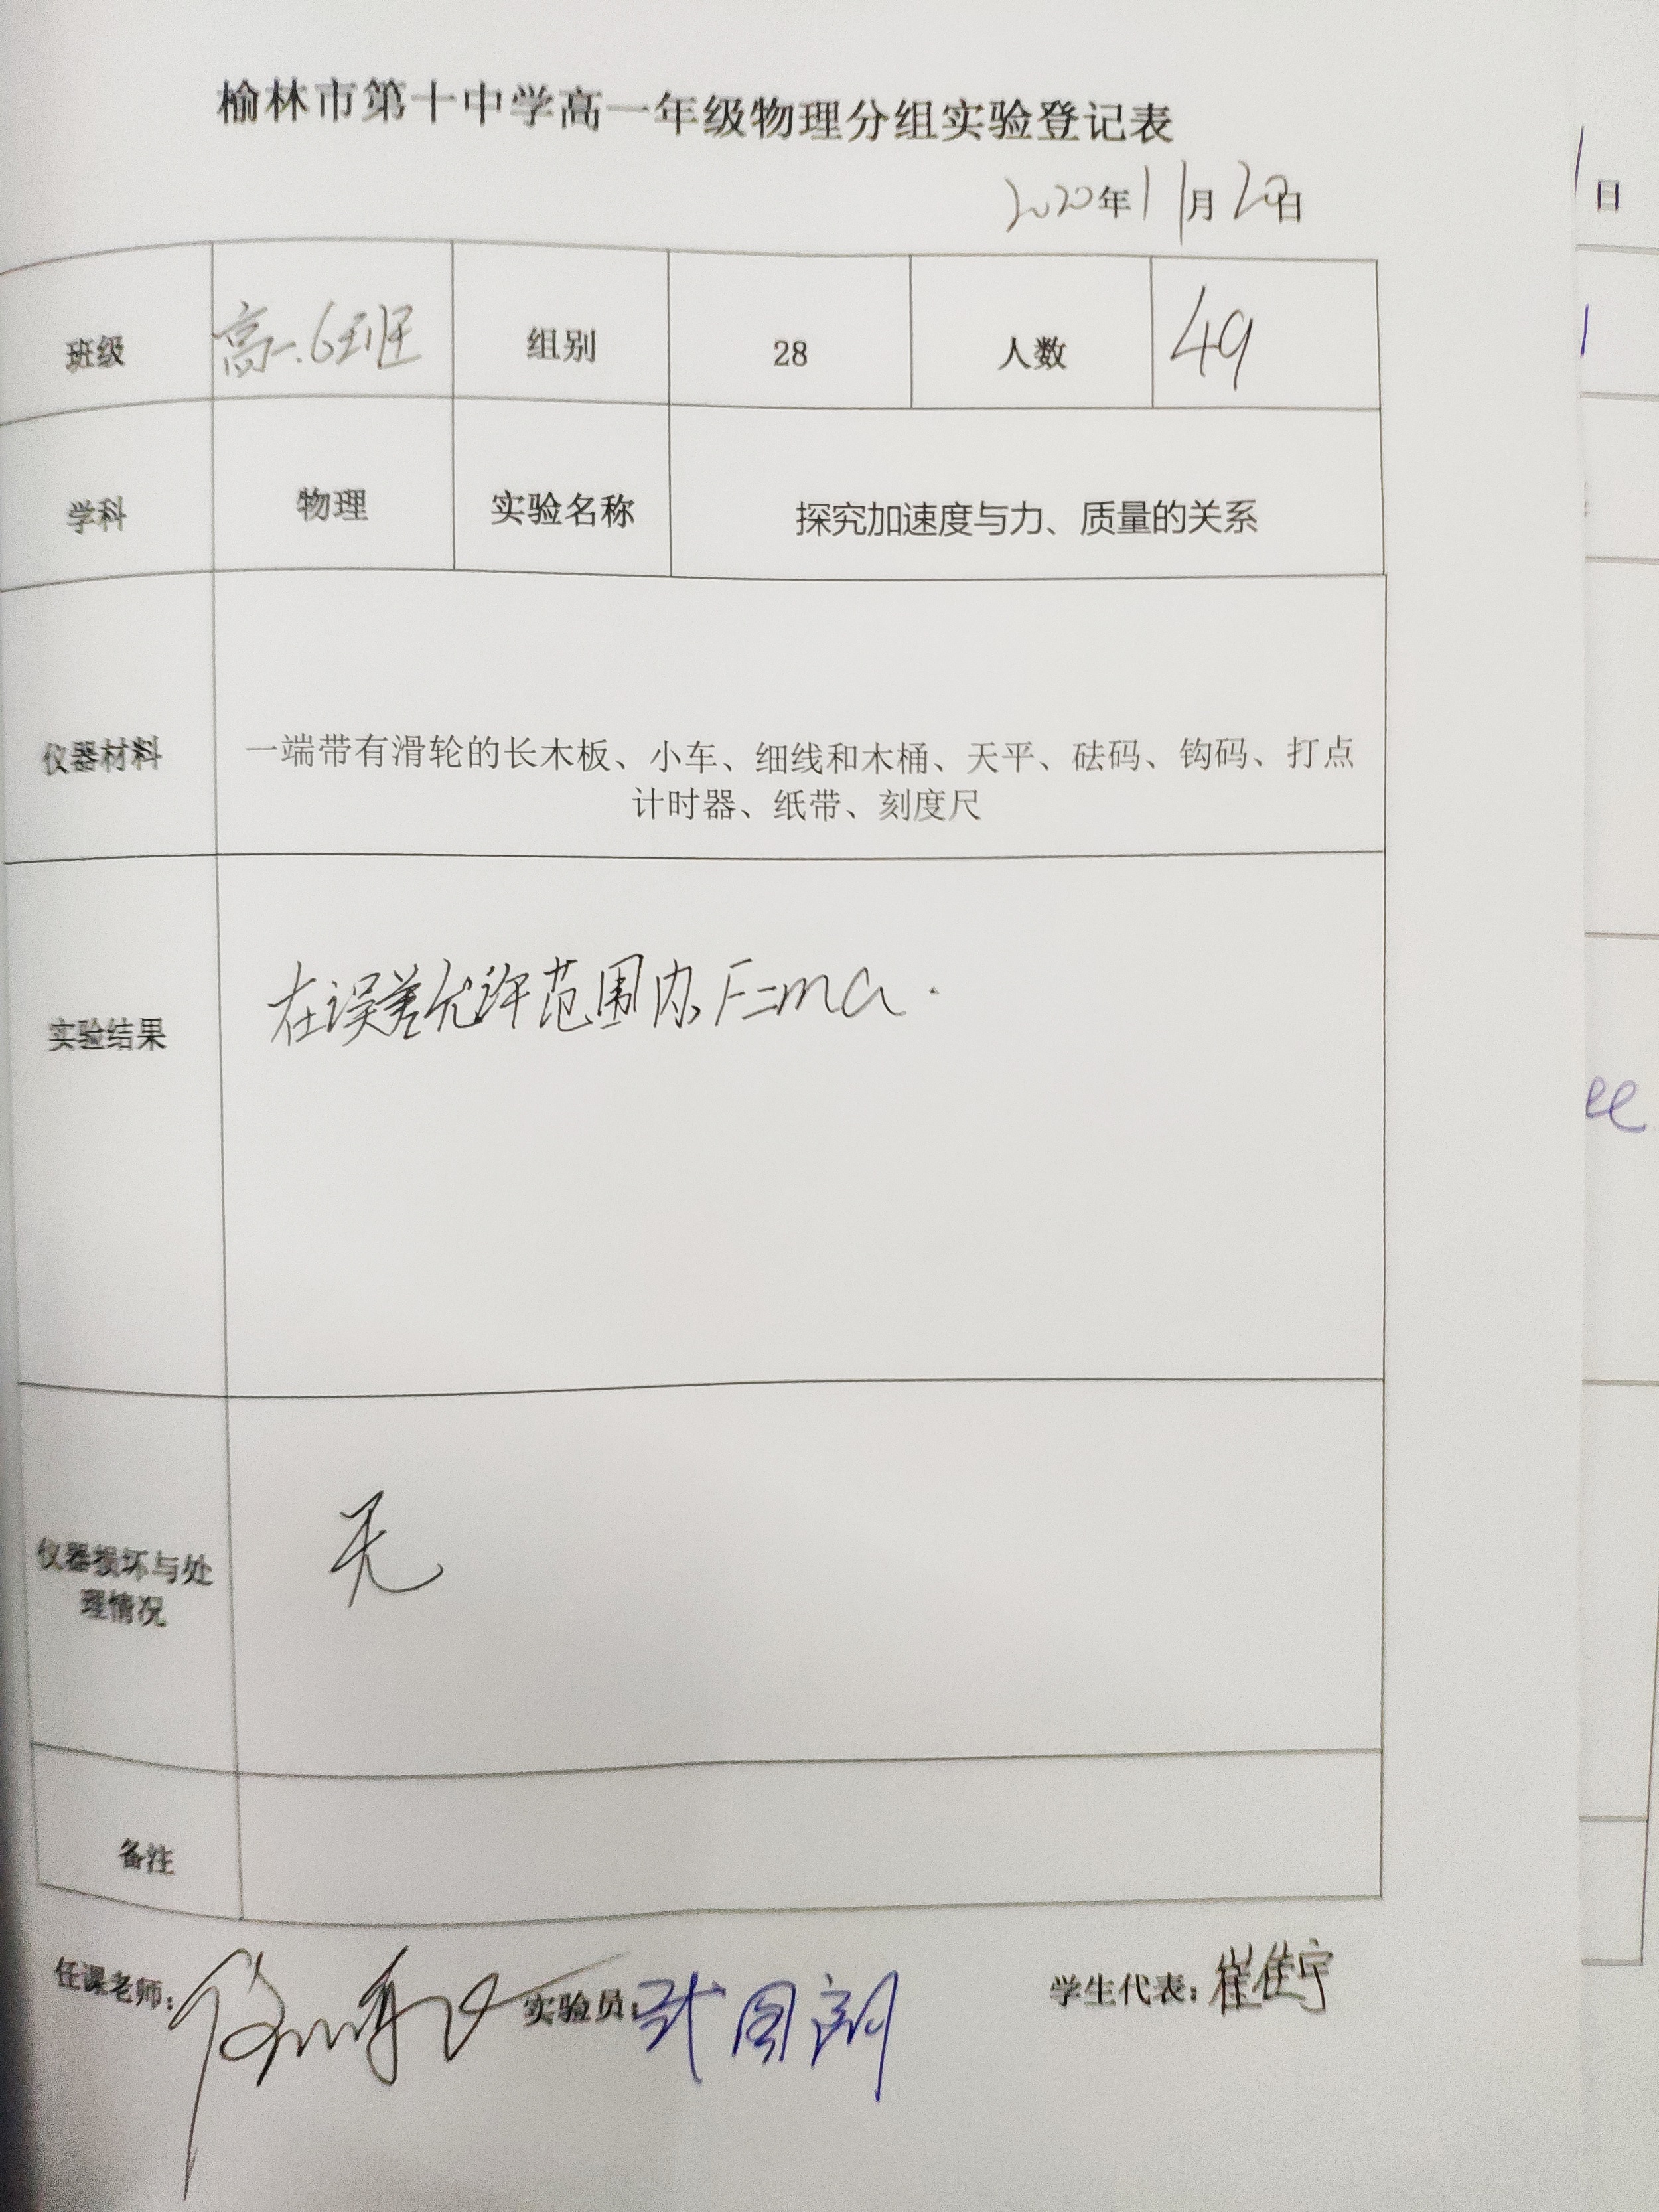 榆林市第十中学高一年级物理分组实验登记表
2020年11月20日
班级 高一.6班 组别 28 人数 49
学科 物理 实验名称 探究加速度与力、质量的关系
仪器材料
一端带有滑轮的长木板、小车、细线和木桶、天平、砝码、钩码、打点
计时器、纸带、刻度尺
实验结果
在误差允许范围内,F=ma.
仪器损坏与处
理情况
无
备注
任课老师: 实验员: 学生代表:崔佳宁
日